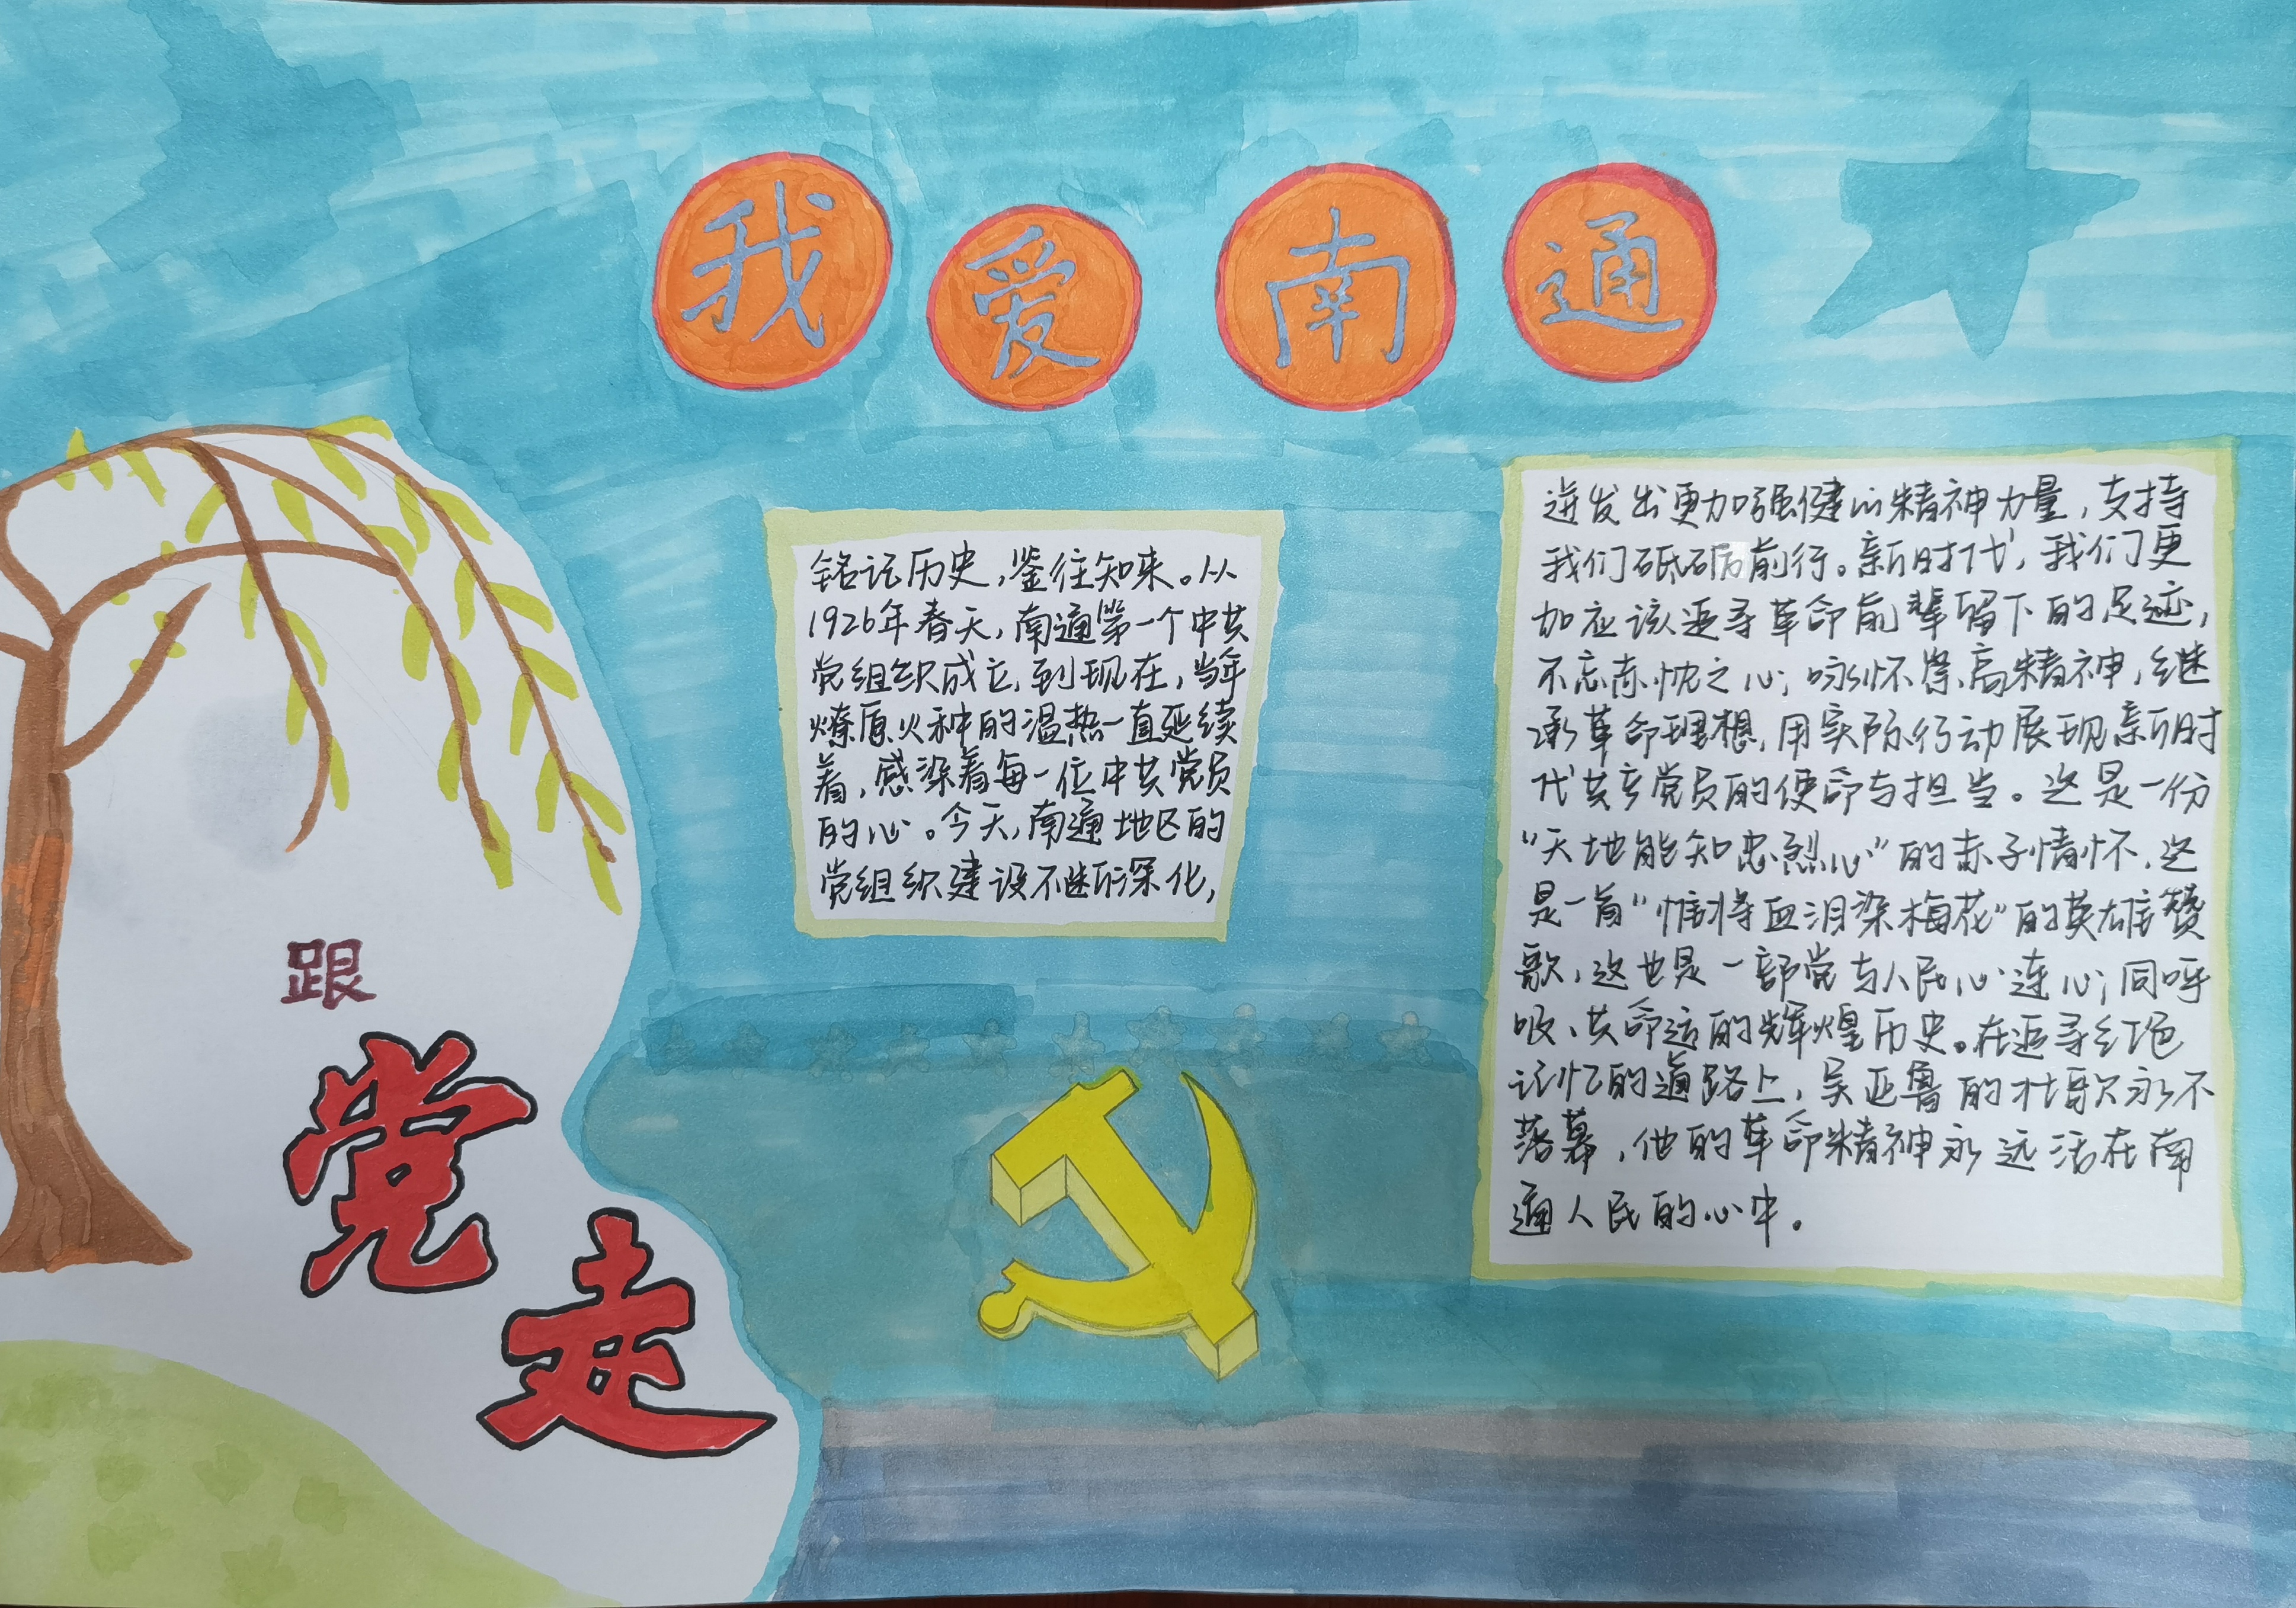 我爱南通
铭记历史,鉴往知来。从
1926年春天,南通第一个中共
党组织成立,到现在,当年
燎原火种的温热一直延续
着,感染着每一位中共党员
的心。今天,南通地区的
党组织建设不断深化,
迸发出更加强健的精神力量,支持
我们砥砺前行。新时代,我们更
加应该追寻革命前辈留下的足迹,
不忘赤忱之心;咏怀崇高精神,继
承革命理想,用实际行动展现新时
代共产党员的使命与担当。这是一份
“天地能知忠烈心”的赤子情怀,这
是一首“惟将血泪染梅花”的英雄赞
歌,这也是一部党与人民心连心;同呼
吸、共命运的辉煌历史。在追寻红色
记忆的道路上,吴亚鲁的壮歌永不
落幕,他的革命精神永远活在南
通人民的心中。
跟
党
走